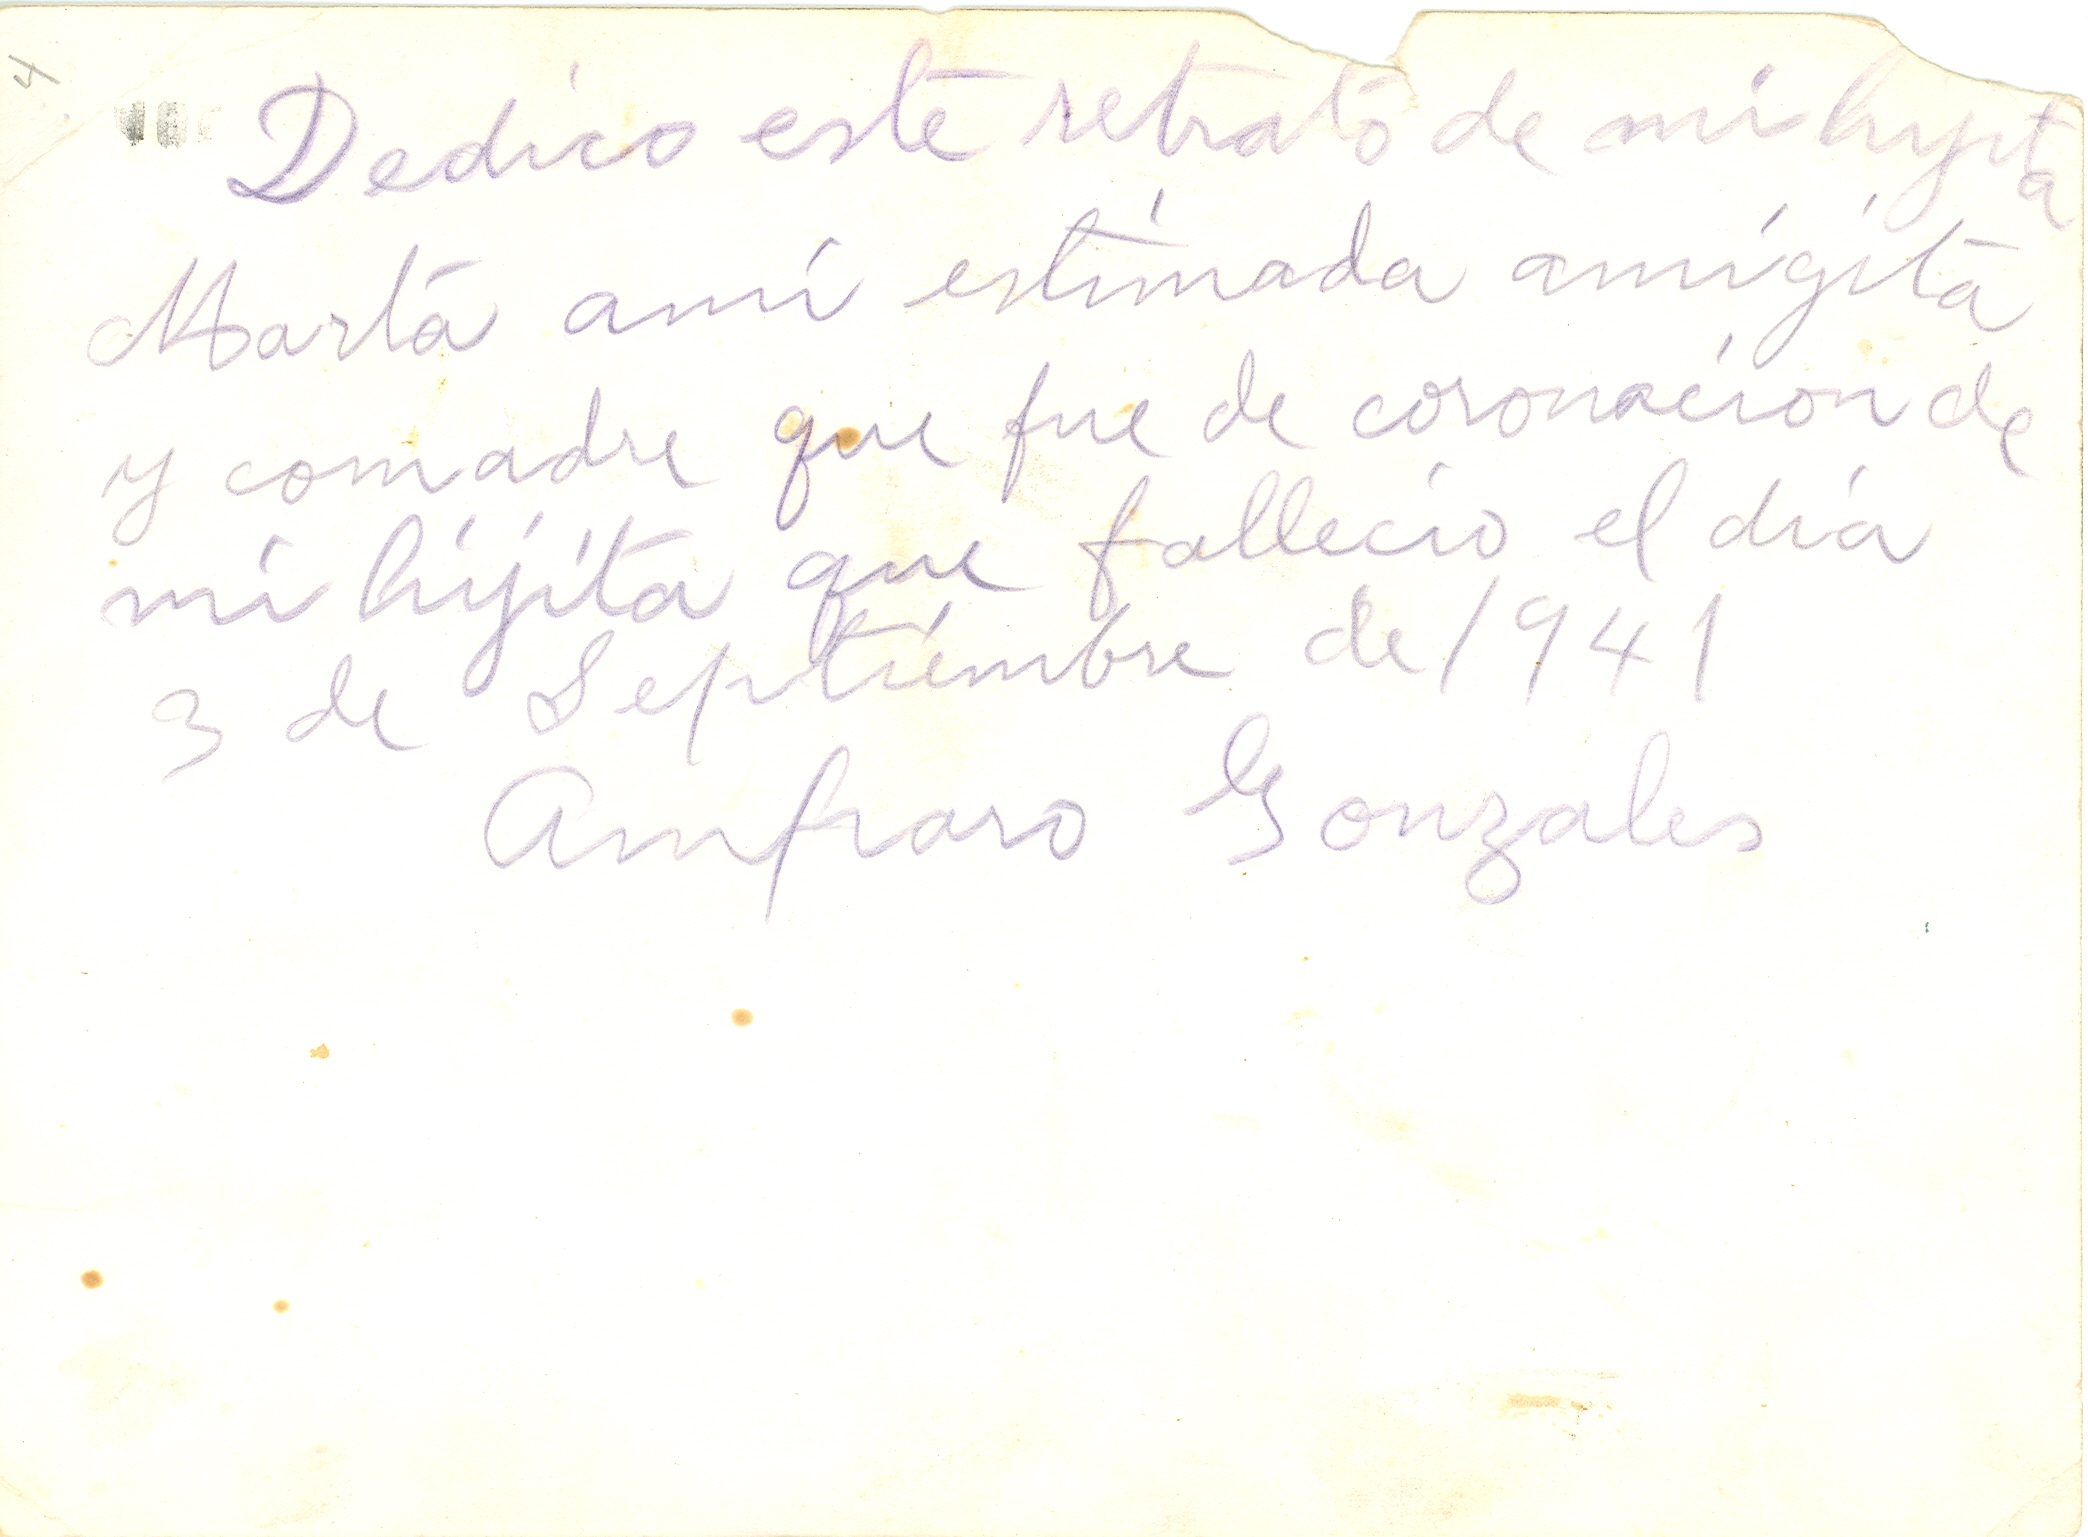 4
Dedico este retrato de mi hijita
Marta ami estimada amigita
y comadre que fue de coronacion de
mi hijita que fallecio el dia
3 de Septiembre de 1941
Amparo Gonzales